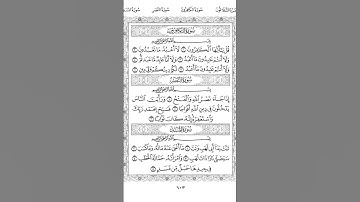 سورة النصر سورة الكافرون
سُورَةُ الكَافِرُونَ
بِسْمِ ٱللَّهِ ٱلرَّحْمَٰنِ ٱلرَّحِيمِ
قُلْ يَٰٓأَيُّهَا ٱلْكَٰفِرُونَ ١ لَآ أَعْبُدُ مَا تَعْبُدُونَ ٢
وَلَآ أَنتُمْ عَٰبِدُونَ مَآ أَعْبُدُ ٣ وَلَآ أَنَا۠ عَابِدٌ مَّا عَبَدتُّمْ ٤
وَلَآ أَنتُمْ عَٰبِدُونَ مَآ أَعْبُدُ ٥ لَكُمْ دِينُكُمْ وَلِيَ دِينِ ٦
سُورَةُ النَّصْرِ
بِسْمِ ٱللَّهِ ٱلرَّحْمَٰنِ ٱلرَّحِيمِ
إِذَا جَآءَ نَصْرُ ٱللَّهِ وَٱلْفَتْحُ ١ وَرَأَيْتَ ٱلنَّاسَ
يَدْخُلُونَ فِي دِينِ ٱللَّهِ أَفْوَاجًا ٢ فَسَبِّحْ بِحَمْدِ رَبِّكَ
وَٱسْتَغْفِرْهُ إِنَّهُۥ كَانَ تَوَّابًۢا ٣
سُورَةُ المَسَدِ
بِسْمِ ٱللَّهِ ٱلرَّحْمَٰنِ ٱلرَّحِيمِ
تَبَّتْ يَدَآ أَبِي لَهَبٍ وَتَبَّ ١ مَآ أَغْنَىٰ عَنْهُ مَالُهُۥ وَمَا كَسَبَ ٢
سَيَصْلَىٰ نَارًا ذَاتَ لَهَبٍ ٣ وَٱمْرَأَتُهُۥ حَمَّالَةَ ٱلْحَطَبِ ٤
فِي جِيدِهَا حَبْلٌ مِّن مَّسَدٍۭ ٥
٦٠٣